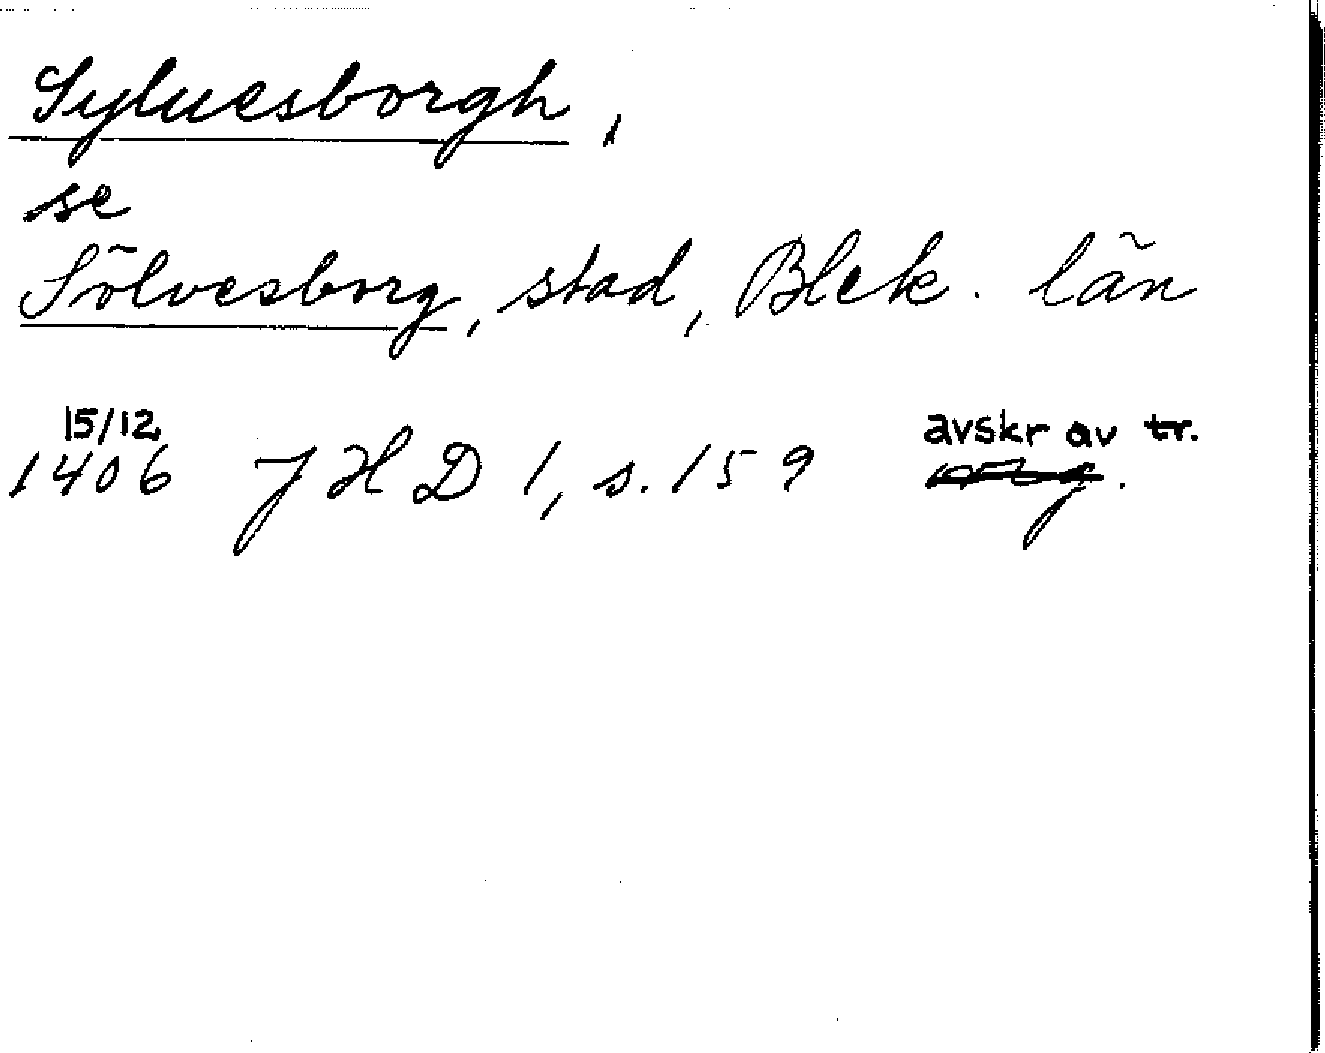 Syluesborgh,
se
Sölvesborg, stad, Blek. län
15/12 avskr av tr.
1406 JHD 1, s. 159 orig.